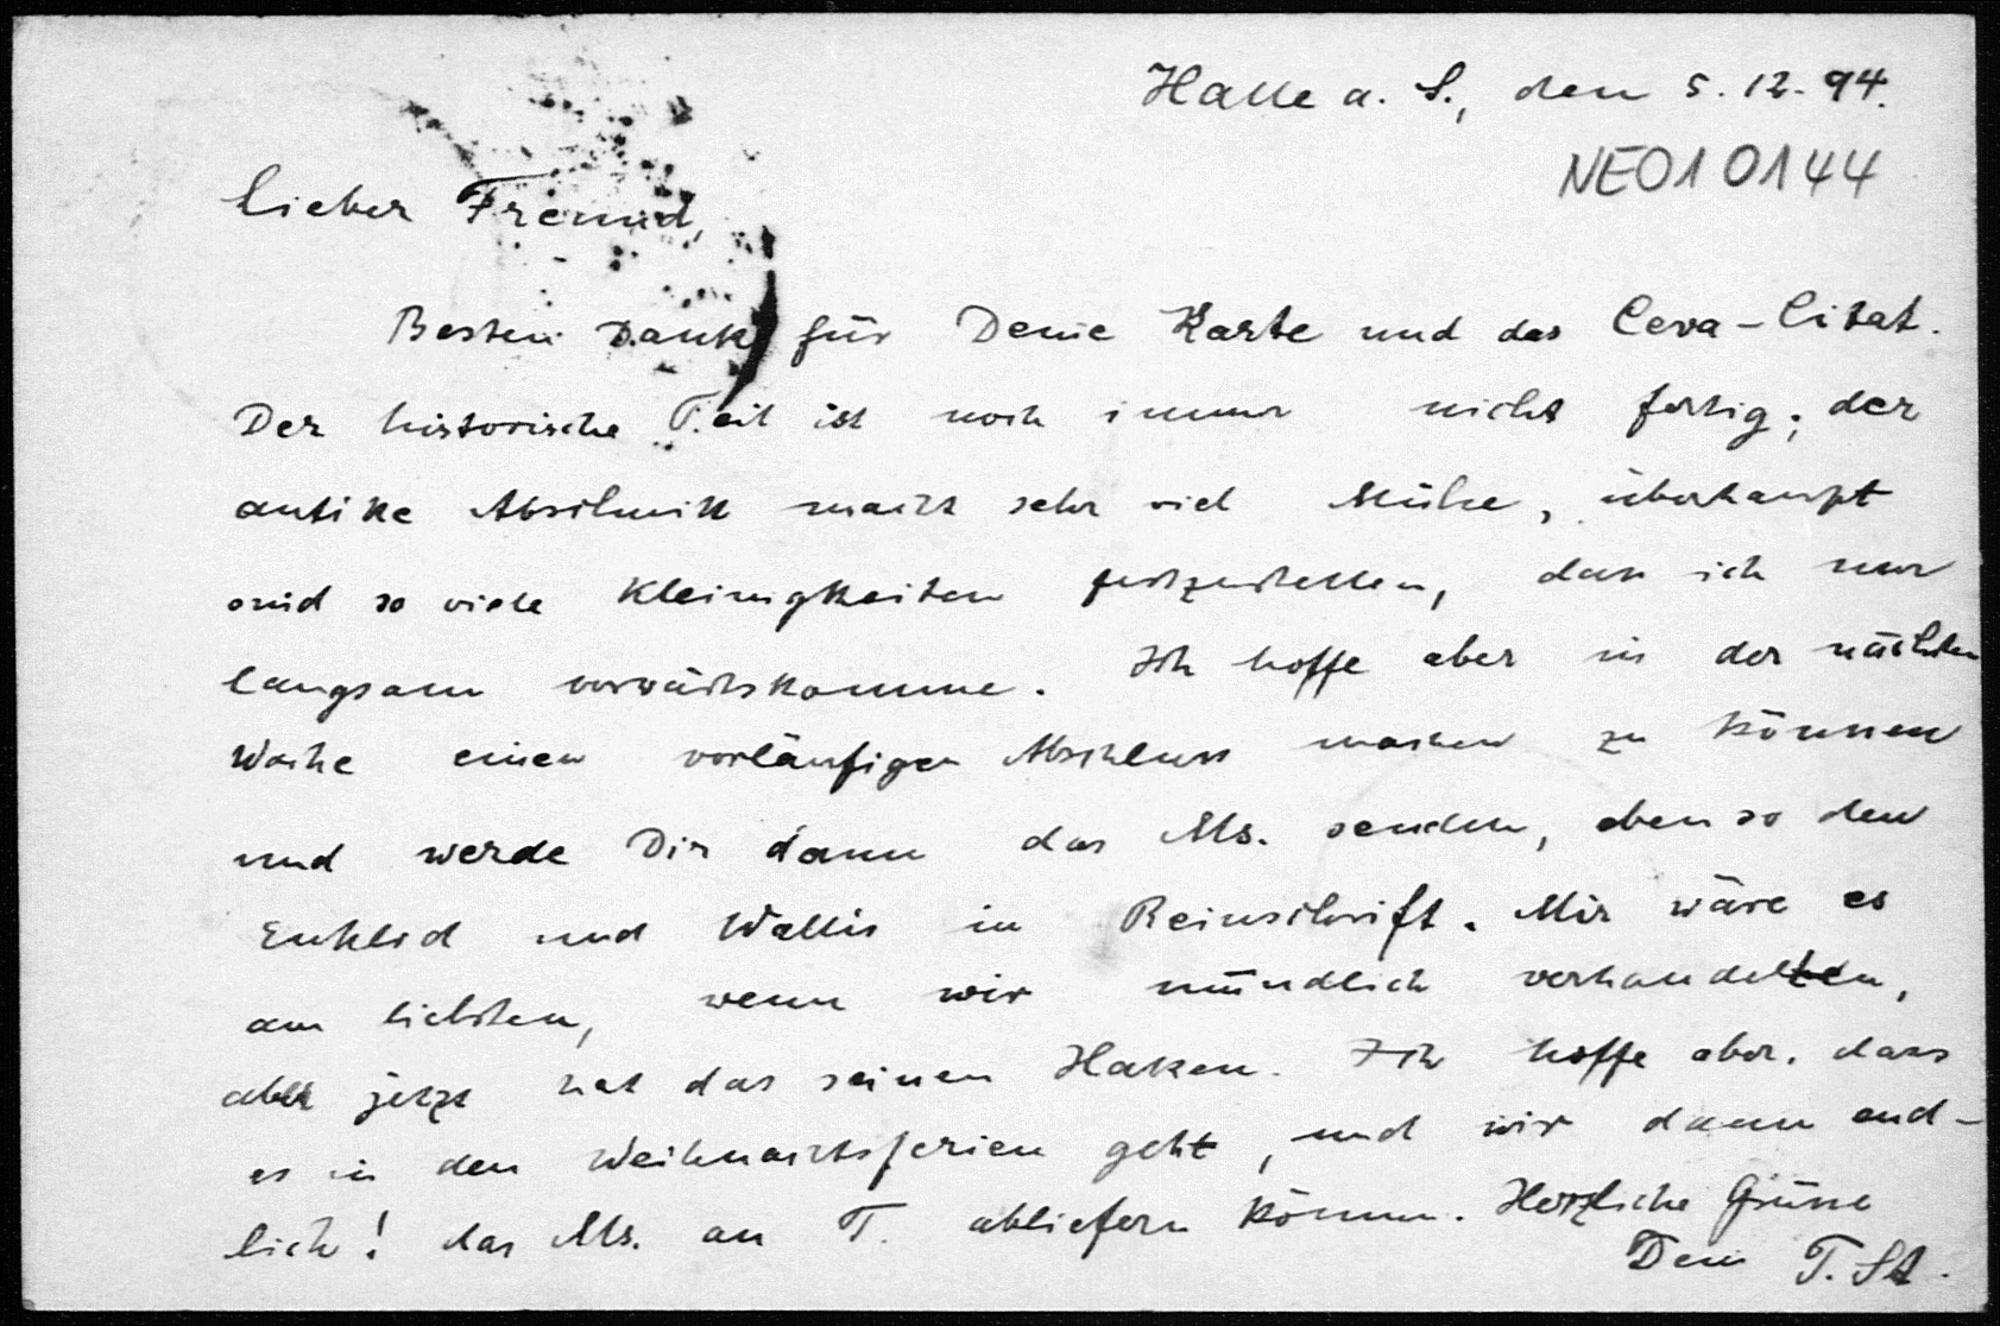 Halle a. S., den 5. 12. 94.
NE010144
Lieber Freund,
Besten Dank für Deine Karte und das Ceva-Citat.
Der historische Teil ist noch immer nicht fertig; der
antike Abschnitt macht sehr viel Mühe, überhaupt
sind so viele Kleinigkeiten festzustellen, dass ich nur
langsam vorwärtskomme. Ich hoffe aber in der nächsten
Woche einen vorläufigen Abschluss machen zu können
und werde Dir dann das Ms. senden, ebenso den
Euklid und Wallis in Reinschrift. Mir wäre es
am liebsten, wenn wir mündlich verhandelten,
aber jetzt hat das seinen Haken. Ich hoffe aber, dass
es in den Weihnachtsferien geht, und wir dann end-
lich! das Ms. an T. abliefern können. Herzliche Grüsse
Dein P. St.